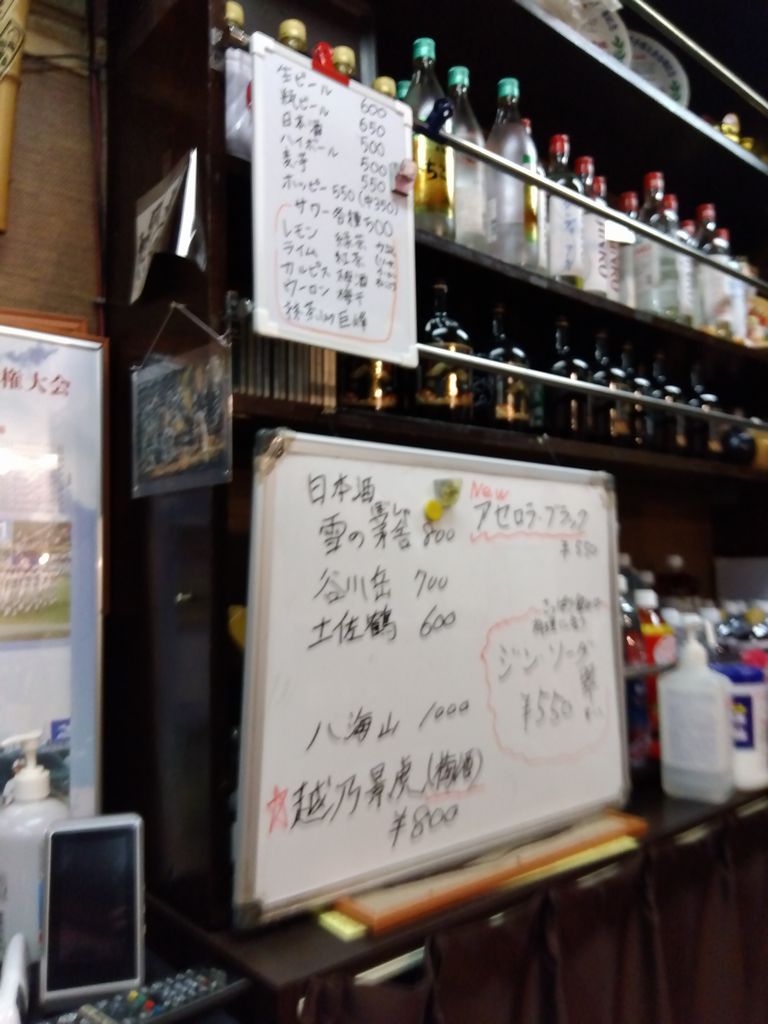 生ビール 600
瓶ビール 650
日本酒 500
ハイボール 500
麦芋 550
ホッピー 550 (中350)
サワー各種 500
レモン 緑茶
ライム 紅茶
カルピス 梅酒
ウーロン 梅干
巨峰
権大会
日本酒
雪の茅舎 800
谷川岳 700
土佐鶴 600
八海山 1000
越乃景虎(梅酒)
¥800
New
アセロラ・ブラック
¥550
ジン・ソーダ
¥550